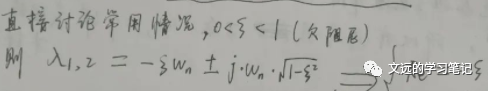 直接讨论常用情况,0<ξ<1(欠阻尼)
则 λ1,2 = -ξωn ± j·ωn·√1-ξ² ⟹
文远的学习笔记